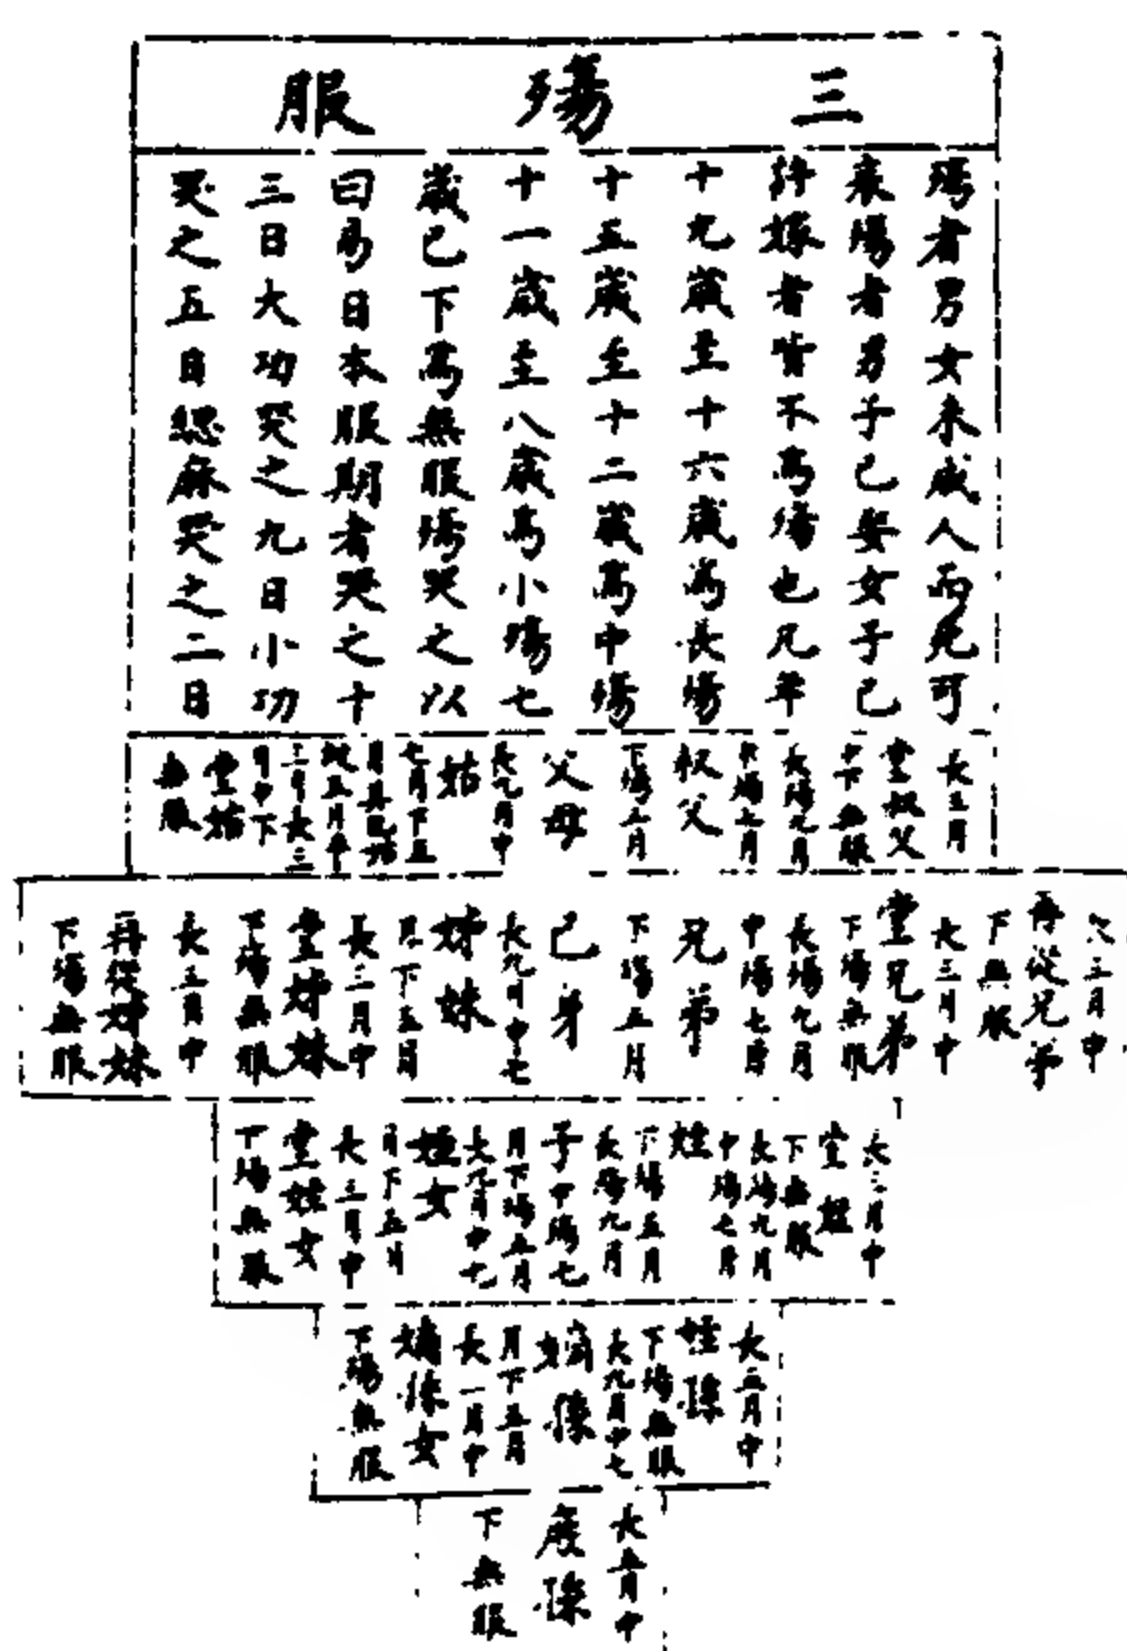 三殤服
殤者男女未成人而死可
哀殤者男子已娶女子已
許嫁者皆不爲殤也凡年
十九歲至十六歲爲長殤
十五歲至十二歲爲中殤
十一歲至八歲爲小殤七
歲已下爲無服殤哭之以
日易日本服期者哭之十
三日大功哭之九日小功
哭之五日緦麻哭之二日
長三月
堂叔父
中下無服
長殤九月
叔父
中殤七月
下殤五月
父母
長九月中
姑
七月下五
三月長三
月中下
堂姑
無服
三月中
再從兄弟
下無服
長三月中
堂兄弟
下殤無服
長殤九月
中殤七月
兄弟
下殤五月
己身
長九月中七
姊妹
月下五月
長三月中
堂姊妹
下殤無服
長三月中
再從姊妹
下殤無服
長三月中
堂姪
下無服
長殤九月
中殤七月
姪
下殤五月
長殤九月
子中殤七
月下殤五月
長九月中七
姪女
月下五月
長三月中
堂姪女
下殤無服
長三月中
姪孫
下殤無服
長九月中七
嫡孫
月下五月
長一月中
嫡孫女
下殤無服
長五月中
庶孫
下無服